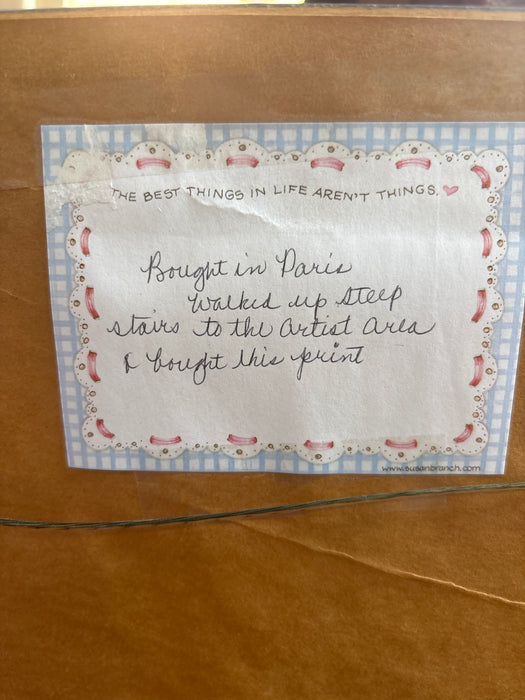 THE BEST THINGS IN LIFE AREN'T THINGS.
Bought in Paris
Walked up steep
stairs to the artist area
& bought this print
www.susanbranch.com